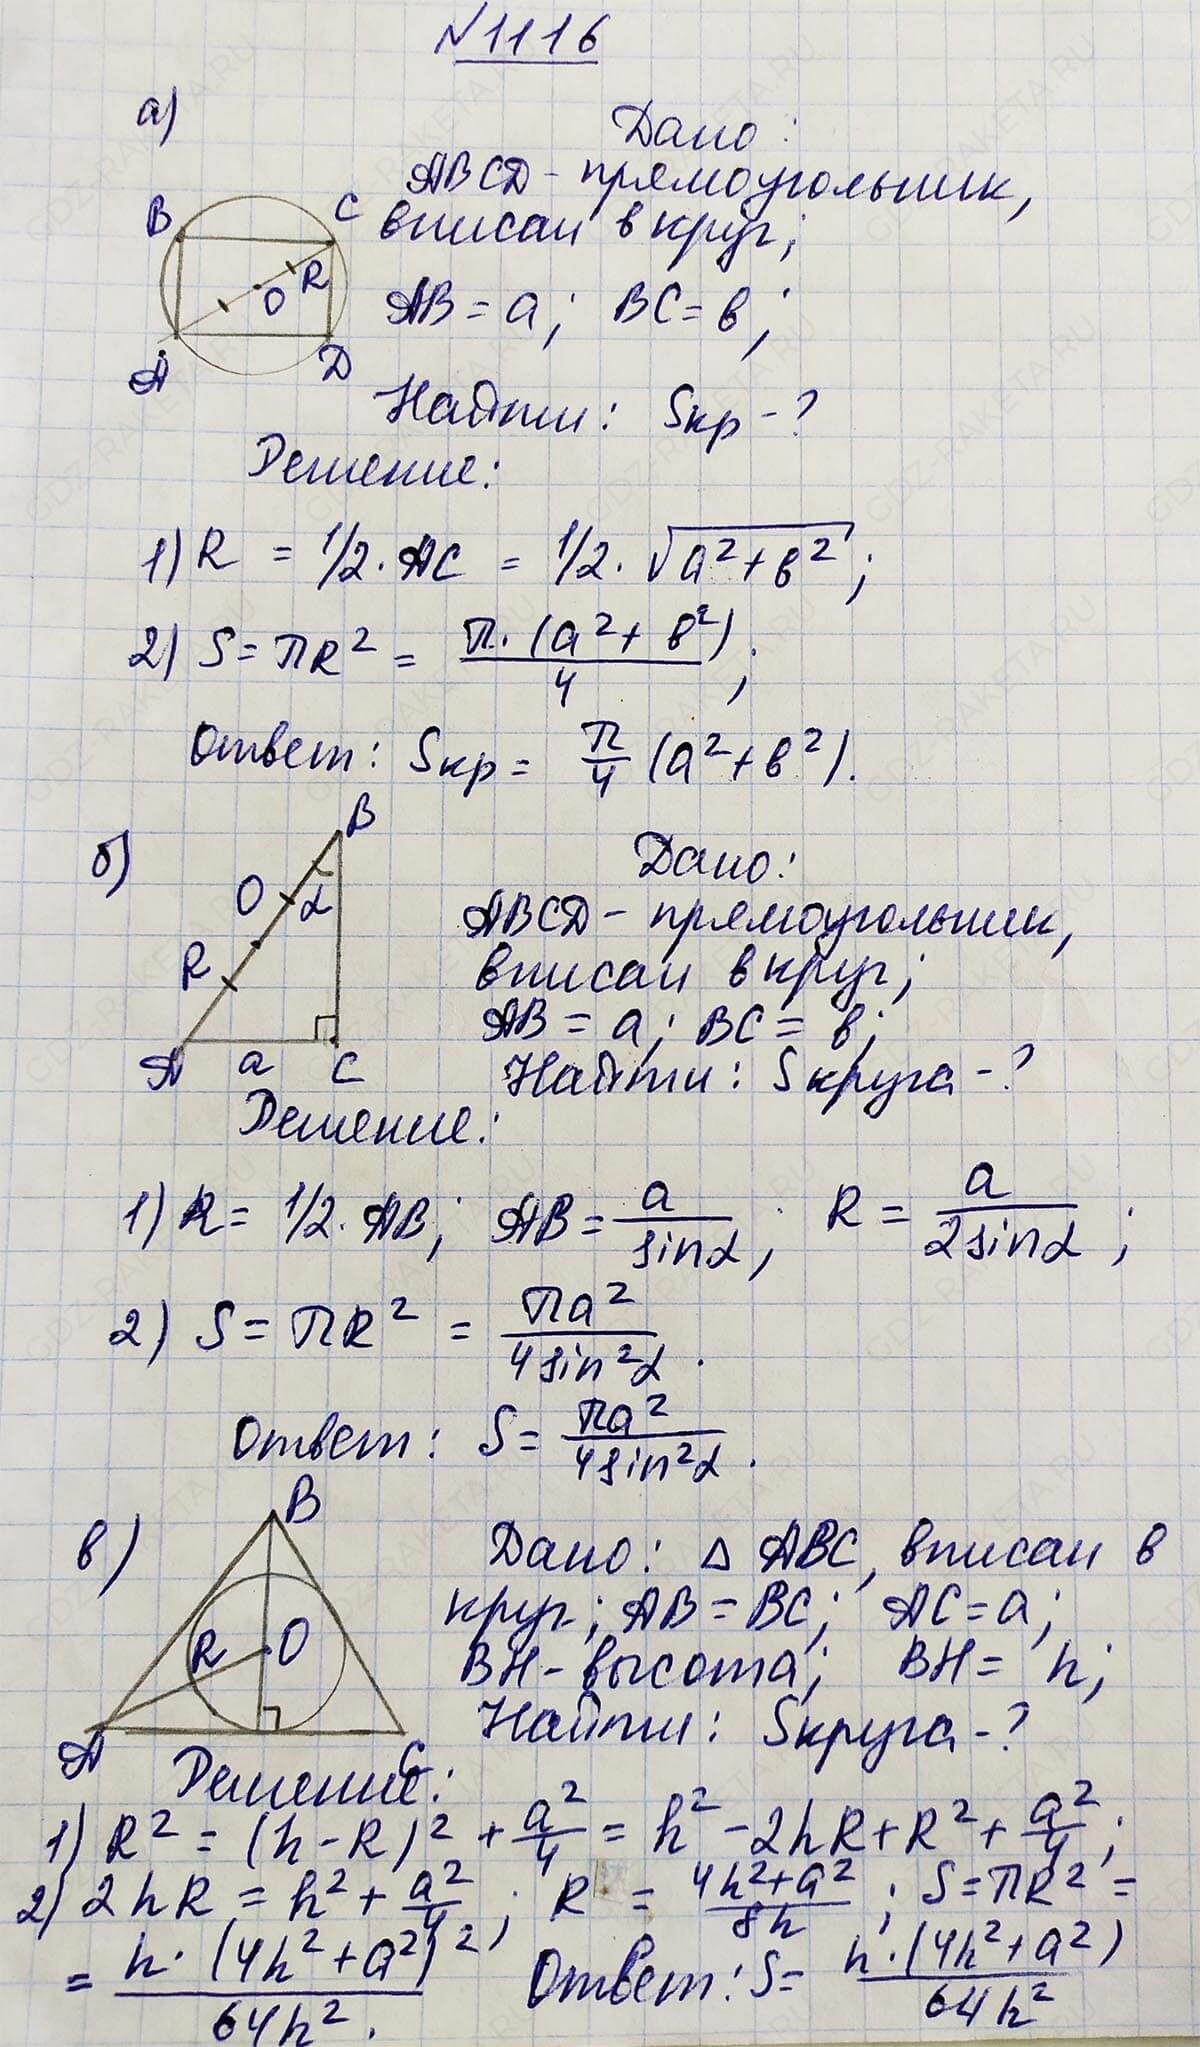 №1116
а)
Дано:
ABCD - прямоугольник,
вписан в круг;
AB = a; BC = в;
B
C
R
O
A
D
Найти: Sкр - ?
Решение:
1) R = 1/2 · AC = 1/2 · √(a² + в²);
2) S = πR² = π · (a² + в²) / 4;
Ответ: Sкр = π/4 (a² + в²).
б)
B
O
α
R
A
a
C
Дано:
ABCD - прямоугольник,
вписан в круг;
AB = a; BC = в;
Найти: Sкруга - ?
Решение:
1) R = 1/2 · AB; AB = a / sinα; R = a / 2sinα;
2) S = πR² = πa² / 4sin²α.
Ответ: S = πa² / 4sin²α.
в)
B
R
O
A
C
Дано: Δ ABC, вписан в
круг; AB = BC; AC = a;
BH - высота; BH = h;
Найти: Sкруга - ?
Решение:
1) R² = (h - R)² + a²/4 = h² - 2hR + R² + a²/4;
2) 2hR = h² + a²/4; R = 4h² + a² / 8h; S = πR² =
= h · (4h² + a²)² / 64h². Ответ: S = h · (4h² + a²) / 64h²
GDZ-RAKETA.RU